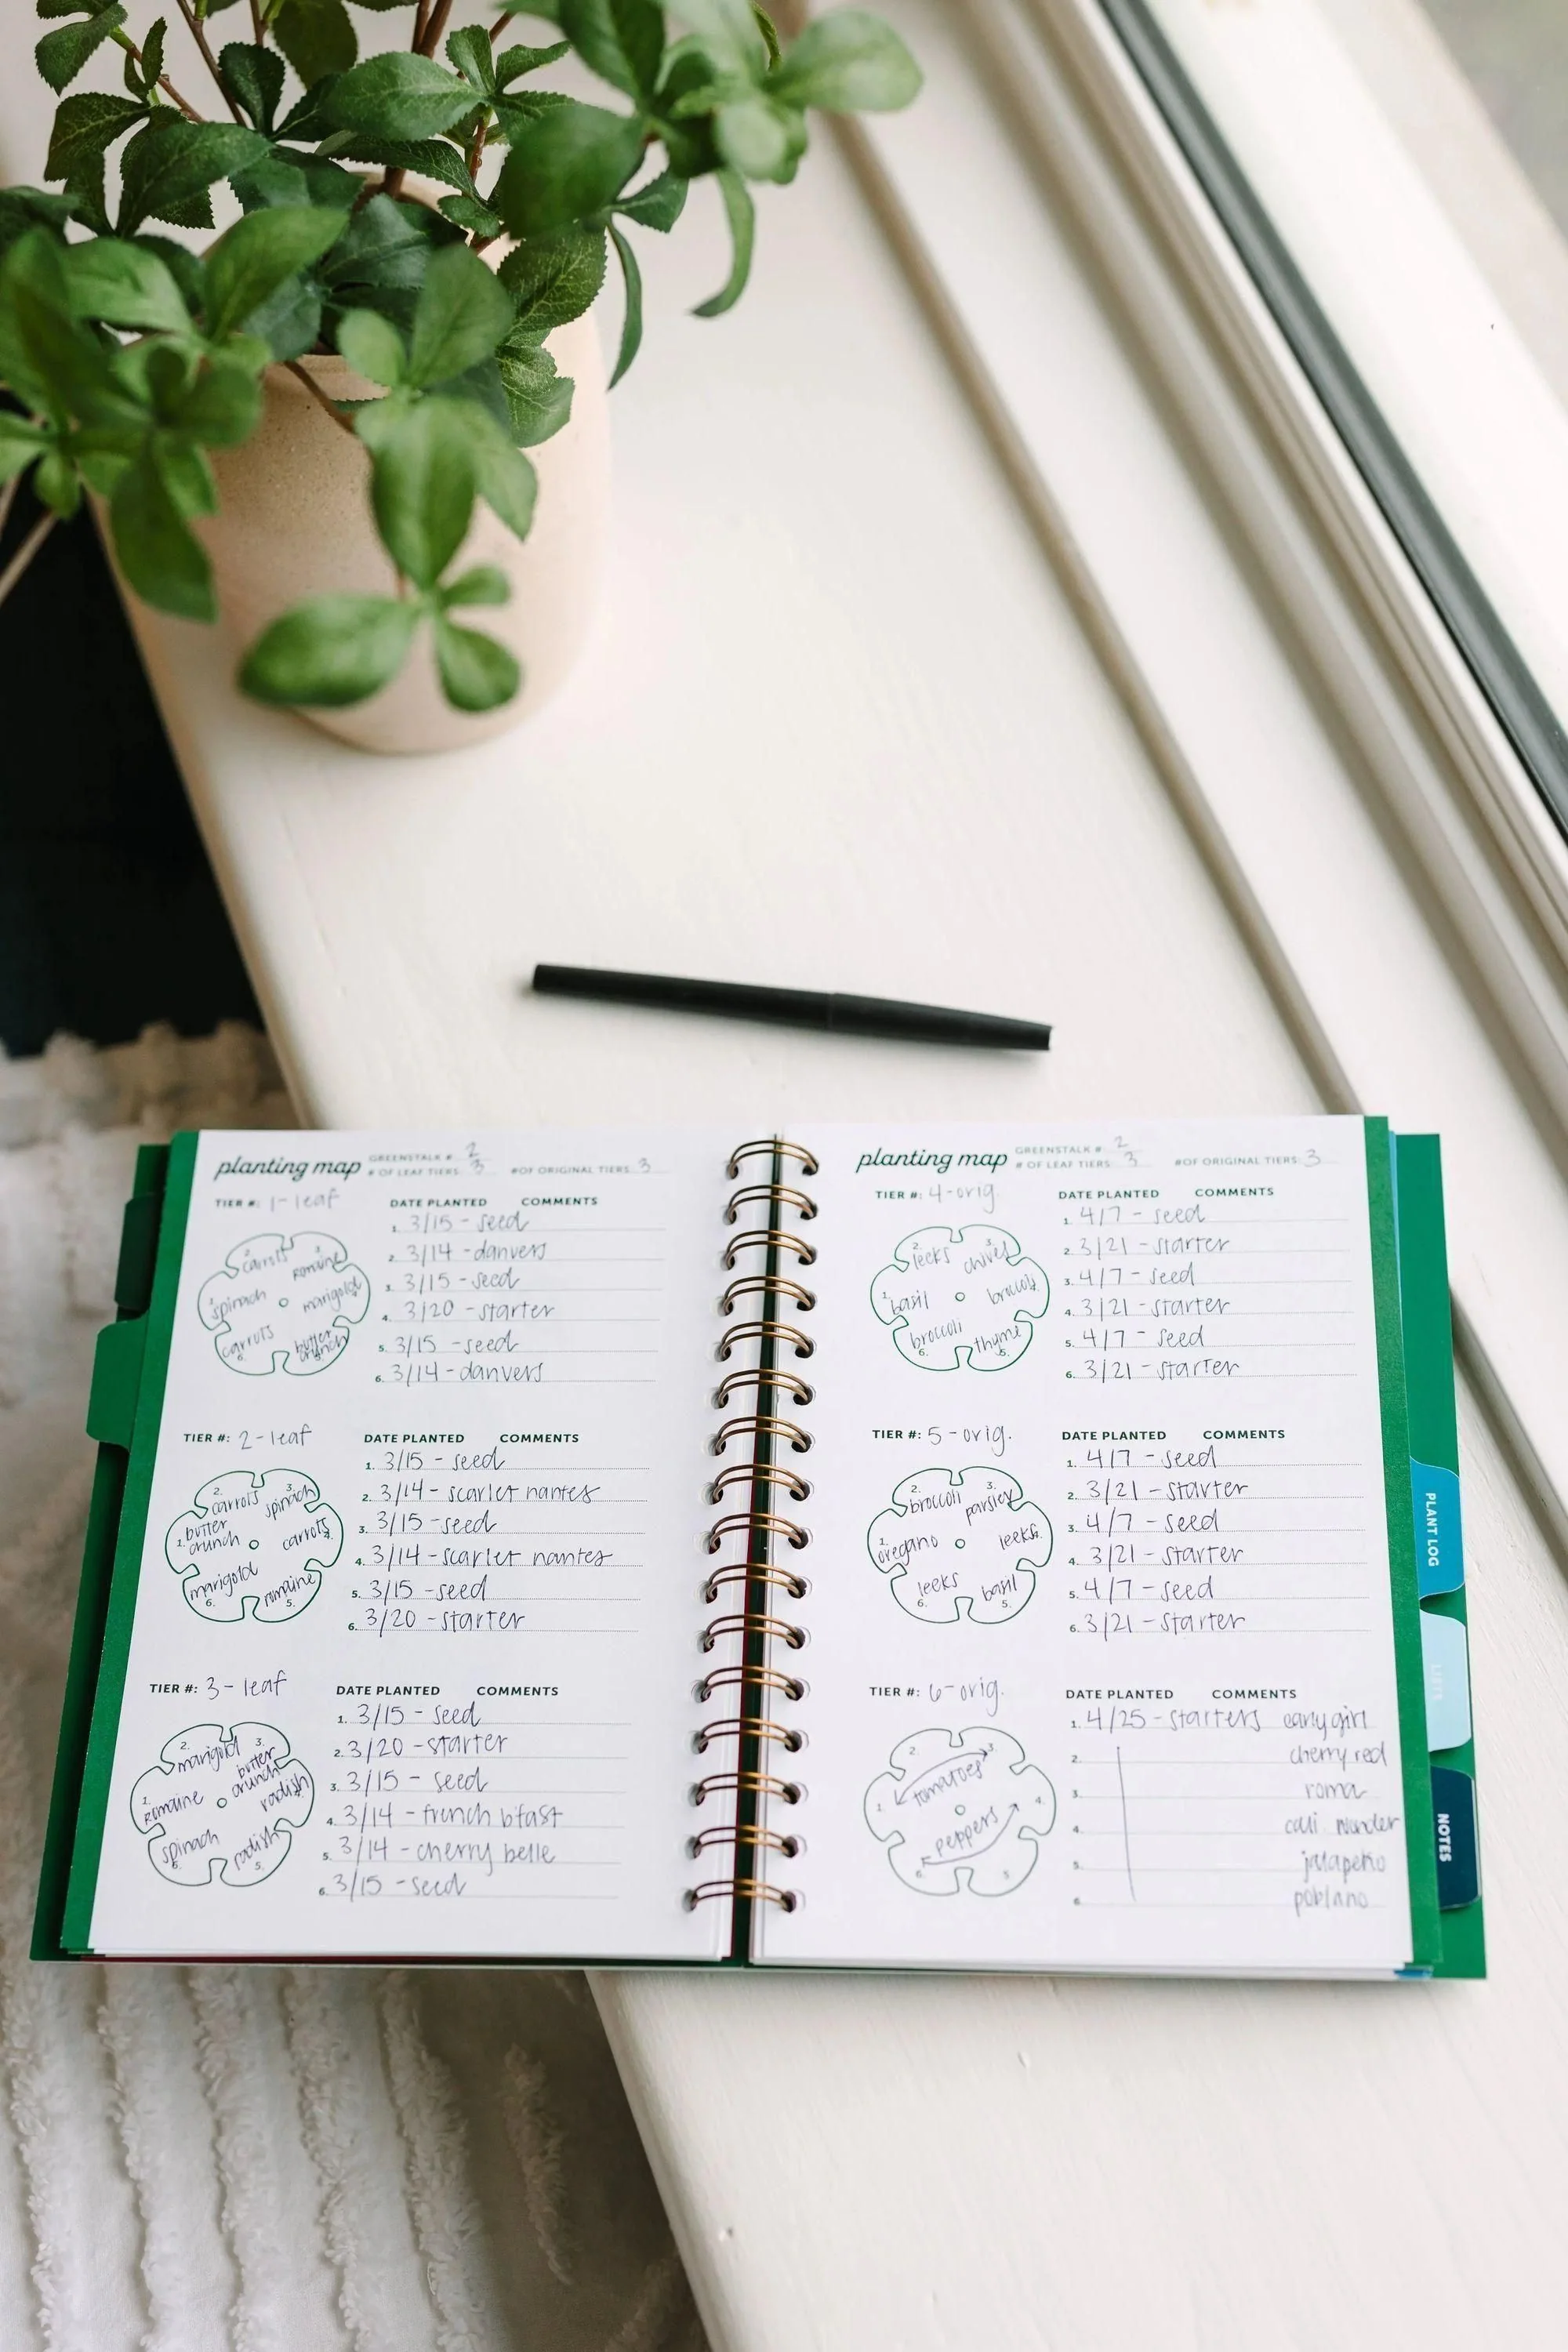 planting map GREENSTALK #: 2
# OF LEAF TIERS: 3 # OF ORIGINAL TIERS: 3
TIER #: 1-leaf DATE PLANTED COMMENTS
1. 3/15 - seed
2. 3/14 - danvers
3. 3/15 - seed
4. 3/20 - starter
5. 3/15 - seed
6. 3/14 - danvers
1. spinach
2. carrots
3. romaine
marigold
butter crunch
6. carrots
TIER #: 2-leaf DATE PLANTED COMMENTS
1. 3/15 - seed
2. 3/14 - scarlet nantes
3. 3/15 - seed
4. 3/14 - scarlet nantes
5. 3/15 - seed
6. 3/20 - starter
1. butter crunch
2. carrots
3. spinach
carrots
5. romaine
6. marigold
TIER #: 3-leaf DATE PLANTED COMMENTS
1. 3/15 - seed
2. 3/20 - starter
3. 3/15 - seed
4. 3/14 - french bfast
5. 3/14 - cherry belle
6. 3/15 - seed
1. romaine
2. marigold
3. butter crunch
radish
5. radish
6. spinach
planting map GREENSTALK #: 2
# OF LEAF TIERS: 3 # OF ORIGINAL TIERS: 3
TIER #: 4-orig. DATE PLANTED COMMENTS
1. 4/7 - seed
2. 3/21 - starter
3. 4/7 - seed
4. 3/21 - starter
5. 4/7 - seed
6. 3/21 - starter
1. basil
2. leeks
3. chives
broccoli
5. thyme
6. broccoli
TIER #: 5-orig. DATE PLANTED COMMENTS
1. 4/7 - seed
2. 3/21 - starter
3. 4/7 - seed
4. 3/21 - starter
5. 4/7 - seed
6. 3/21 - starter
1. oregano
2. broccoli
3. parsley
leeks
5. basil
6. leeks
TIER #: 6-orig. DATE PLANTED COMMENTS
1. 4/25 - starters early girl
2. cherry red
3. roma
4. cali wonder
5. jalapeño
6. poblano
1. 2. 3. tomatoes
4. 5. 6. peppers
PLANT LOG
NOTES